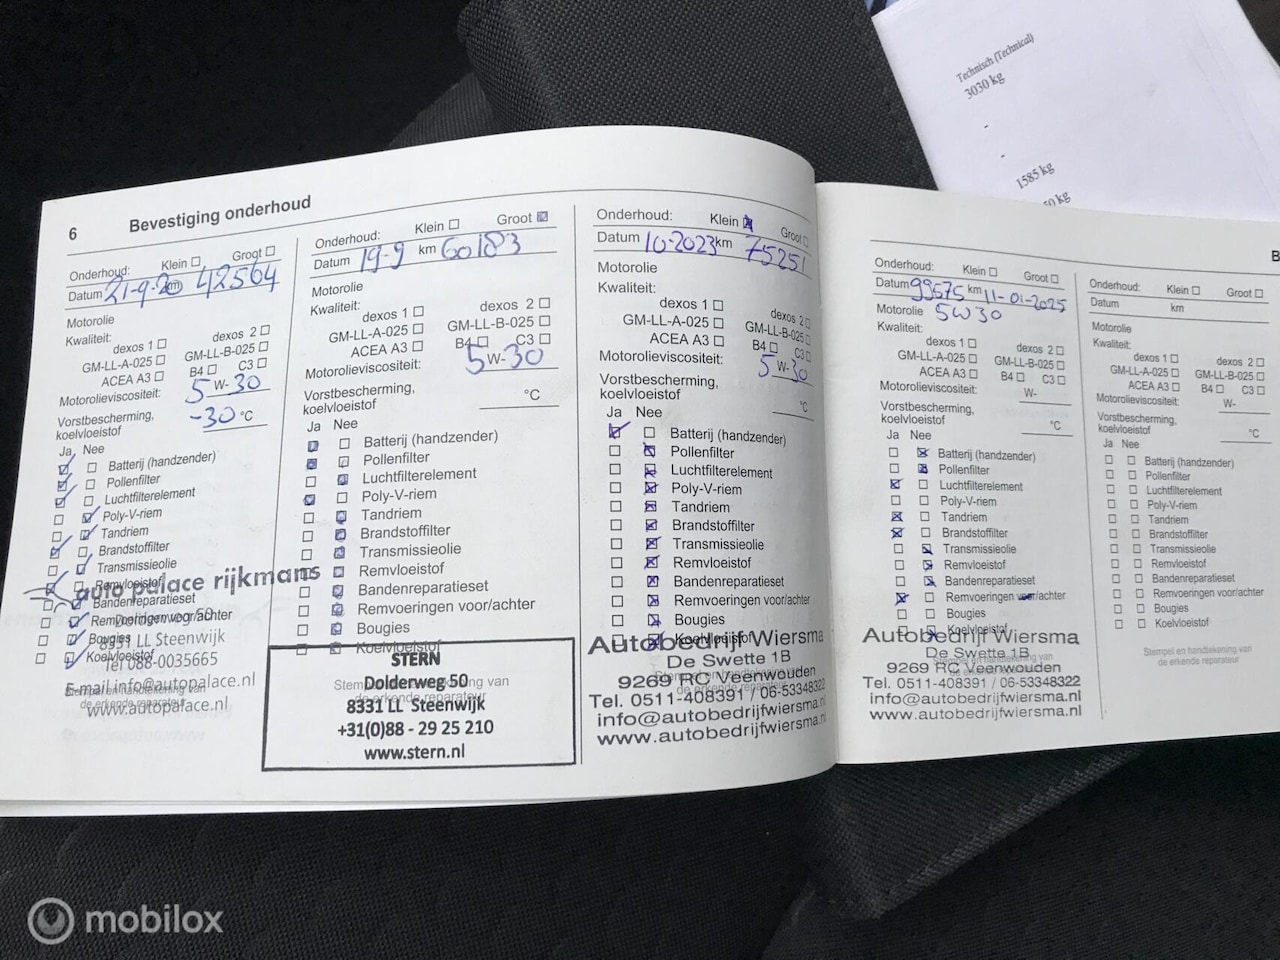 Technisch (Technical)
3030 kg
-
-
1585 kg
50 kg
6 Bevestiging onderhoud
Onderhoud: Klein Groot
Datum 21-9-20 km 42564
Motorolie
Kwaliteit:
dexos 1 dexos 2
GM-LL-A-025 GM-LL-B-025
ACEA A3 B4 C3
Motorolieviscositeit: 5 W-30
Vorstbescherming, koelvloeistof -30 °C
Ja Nee
Batterij (handzender)
Pollenfilter
Luchtfilterelement
Poly-V-riem
Tandriem
Brandstoffilter
Transmissieolie
Remvloeistof
auto palace rijkmans
Bandenreparatieset
Remvoeringen voor/achter
Dolderweg 50
Bougies
8331 LL Steenwijk
Koelvloeistof
Tel 088-0035665
E-mail info@autopalace.nl
Stempel en handtekening van
de erkende reparateur
www.autopalace.nl
Onderhoud: Klein Groot
Datum 19-9 km 60183
Motorolie
Kwaliteit:
dexos 1 dexos 2
GM-LL-A-025 GM-LL-B-025
ACEA A3 B4 C3
Motorolieviscositeit: 5 W-30
Vorstbescherming,
koelvloeistof °C
Ja Nee
Batterij (handzender)
Pollenfilter
Luchtfilterelement
Poly-V-riem
Tandriem
Brandstoffilter
Transmissieolie
Remvloeistof
Bandenreparatieset
Remvoeringen voor/achter
Bougies
Koelvloeistof
STERN
Stempel en handtekening van
Dolderweg 50
de erkende reparateur
8331 LL Steenwijk
+31(0)88 - 29 25 210
www.stern.nl
Onderhoud: Klein Groot
Datum 10-2023 km 75251
Motorolie
Kwaliteit:
dexos 1 dexos 2
GM-LL-A-025 GM-LL-B-025
ACEA A3 B4 C3
Motorolieviscositeit: 5 W-30
Vorstbescherming,
koelvloeistof °C
Ja Nee
Batterij (handzender)
Pollenfilter
Luchtfilterelement
Poly-V-riem
Tandriem
Brandstoffilter
Transmissieolie
Remvloeistof
Bandenreparatieset
Remvoeringen voor/achter
Bougies
Koelvloeistof
Autobedrijf Wiersma
De Swette 1B
9269 RC Veenwouden
Tel. 0511-408391 / 06-53348322
info@autobedrijfwiersma.nl
www.autobedrijfwiersma.nl
B
Onderhoud: Klein Groot
Datum 99675 km 11-01-2025
Motorolie 5W30
Kwaliteit:
dexos 1 dexos 2
GM-LL-A-025 GM-LL-B-025
ACEA A3 B4 C3
Motorolieviscositeit: W-
Vorstbescherming,
koelvloeistof °C
Ja Nee
Batterij (handzender)
Pollenfilter
Luchtfilterelement
Poly-V-riem
Tandriem
Brandstoffilter
Transmissieolie
Remvloeistof
Bandenreparatieset
Remvoeringen voor/achter
Bougies
Koelvloeistof
Autobedrijf Wiersma
De Swette 1B
9269 RC Veenwouden
Tel. 0511-408391 / 06-53348322
info@autobedrijfwiersma.nl
www.autobedrijfwiersma.nl
Onderhoud: Klein Groot
Datum km
Motorolie
Kwaliteit:
dexos 1 dexos 2
GM-LL-A-025 GM-LL-B-025
ACEA A3 B4 C3
Motorolieviscositeit: W-
Vorstbescherming,
koelvloeistof °C
Ja Nee
Batterij (handzender)
Pollenfilter
Luchtfilterelement
Poly-V-riem
Tandriem
Brandstoffilter
Transmissieolie
Remvloeistof
Bandenreparatieset
Remvoeringen voor/achter
Bougies
Koelvloeistof
Stempel en handtekening van
de erkende reparateur
mobilox